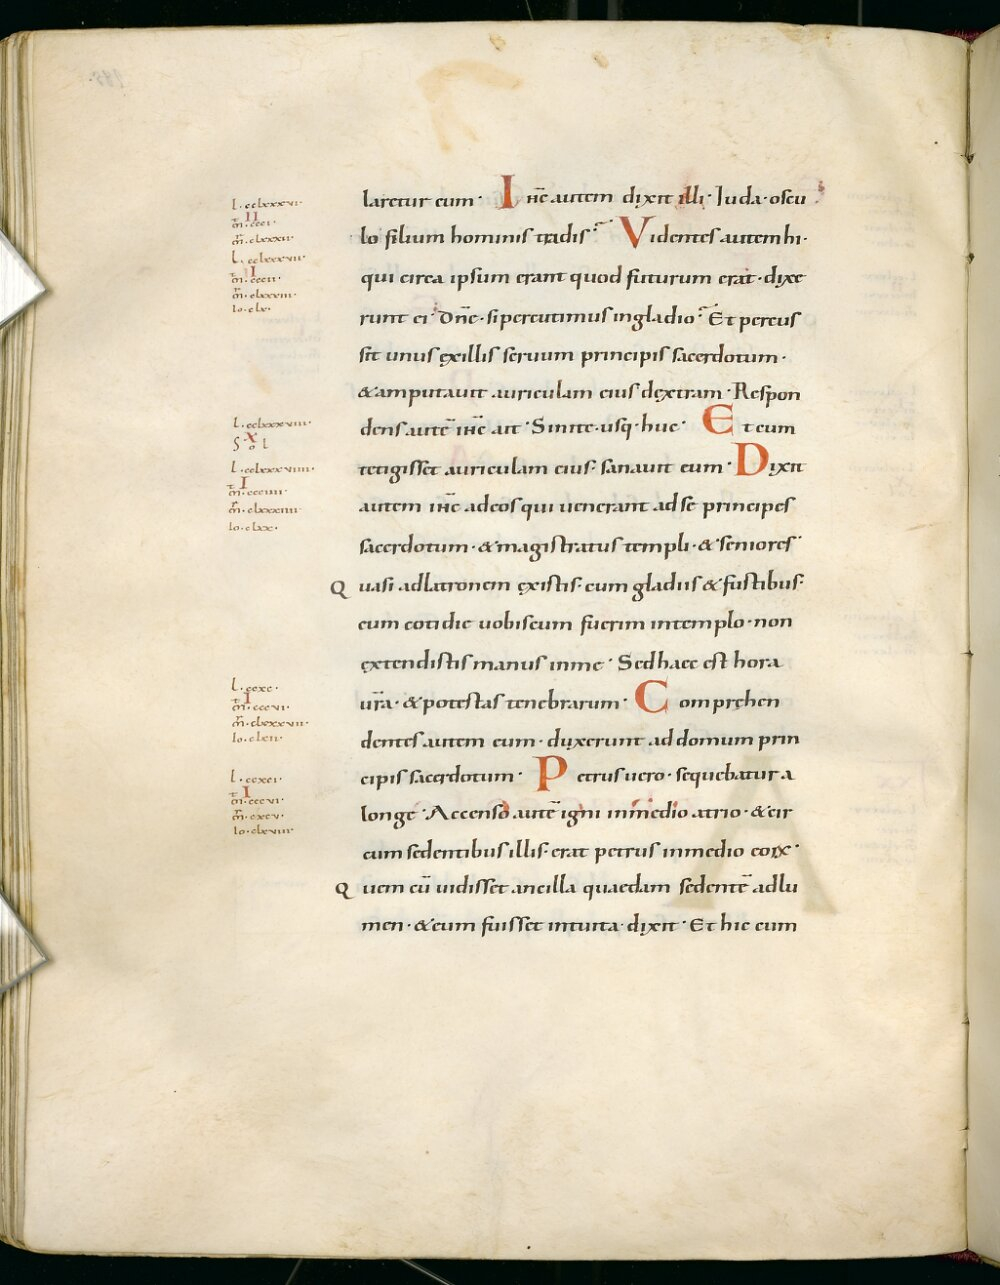 laretur eum· Ihc̄ autem dixit illi· Iuda· oscu
lo filium hominis tradis? Videntes autem hi·
qui circa ipsum erant quod futurum erat· dixe
runt ei· Dn̄e· si percutimus in gladio? Et percus
sit unus ex illis seruum principis sacerdotum·
& amputauit auriculam eius dextram· Respon
dens autē ihc̄ ait· Sinite· usq· huc· Et cum
tetigisset auriculam eius· sanauit eum· Dixit
autem ihc̄ ad eos qui uenerant ad se principes
sacerdotum· & magistratus templi· & seniores·
Quasi ad latronem existis· cum gladiis & fustibus·
cum cotidie uobiscum fuerim in templo· non
extendistis manus in me· Sed haec est hora
ur̄a· & potestas tenebrarum· Comprehen
dentes autem eum· duxerunt ad domum prin
cipis sacerdotum· Petrus uero· sequebatur a
longe· Accenso autē igni in medio atrio· & cir
cum sedentibus illis· erat petrus in medio eorx·
Quem cū uidisset ancilla quaedam sedentē ad lu
men· & eum fuisset intuita· dixit· Et hic cum
l· cclxxxvi·
II
m̄· ccci·
m̄r· clxxxii·
l· cclxxxvii·
I
m̄· cccii·
m̄r· clxxxiii·
io· clx·
l· cclxxxviii·
X
l· cclxxxviiii·
I
m̄· ccciiii·
m̄r· clxxxiiii·
io· clxx·
l· ccxc·
I
m̄· cccvi·
m̄r· clxxxvii·
l· ccxci·
I
m̄· cccvi·